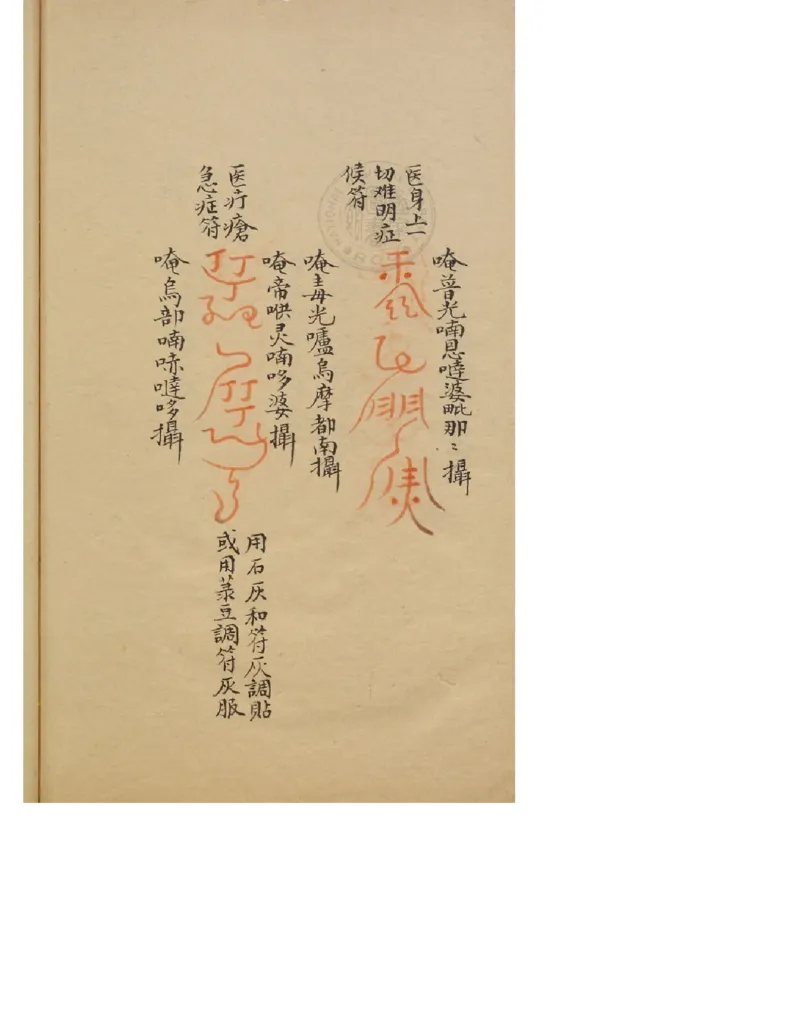 医身上一
切难明症
候符
唵普光喃恩噠婆毗那〻攝
唵毒光嚧烏摩都南攝
医疔瘡
急症符
唵帝哄灵喃哆婆攝
唵烏部喃唻噠哆攝
用石灰和符灰調貼
或用菉豆調符灰服